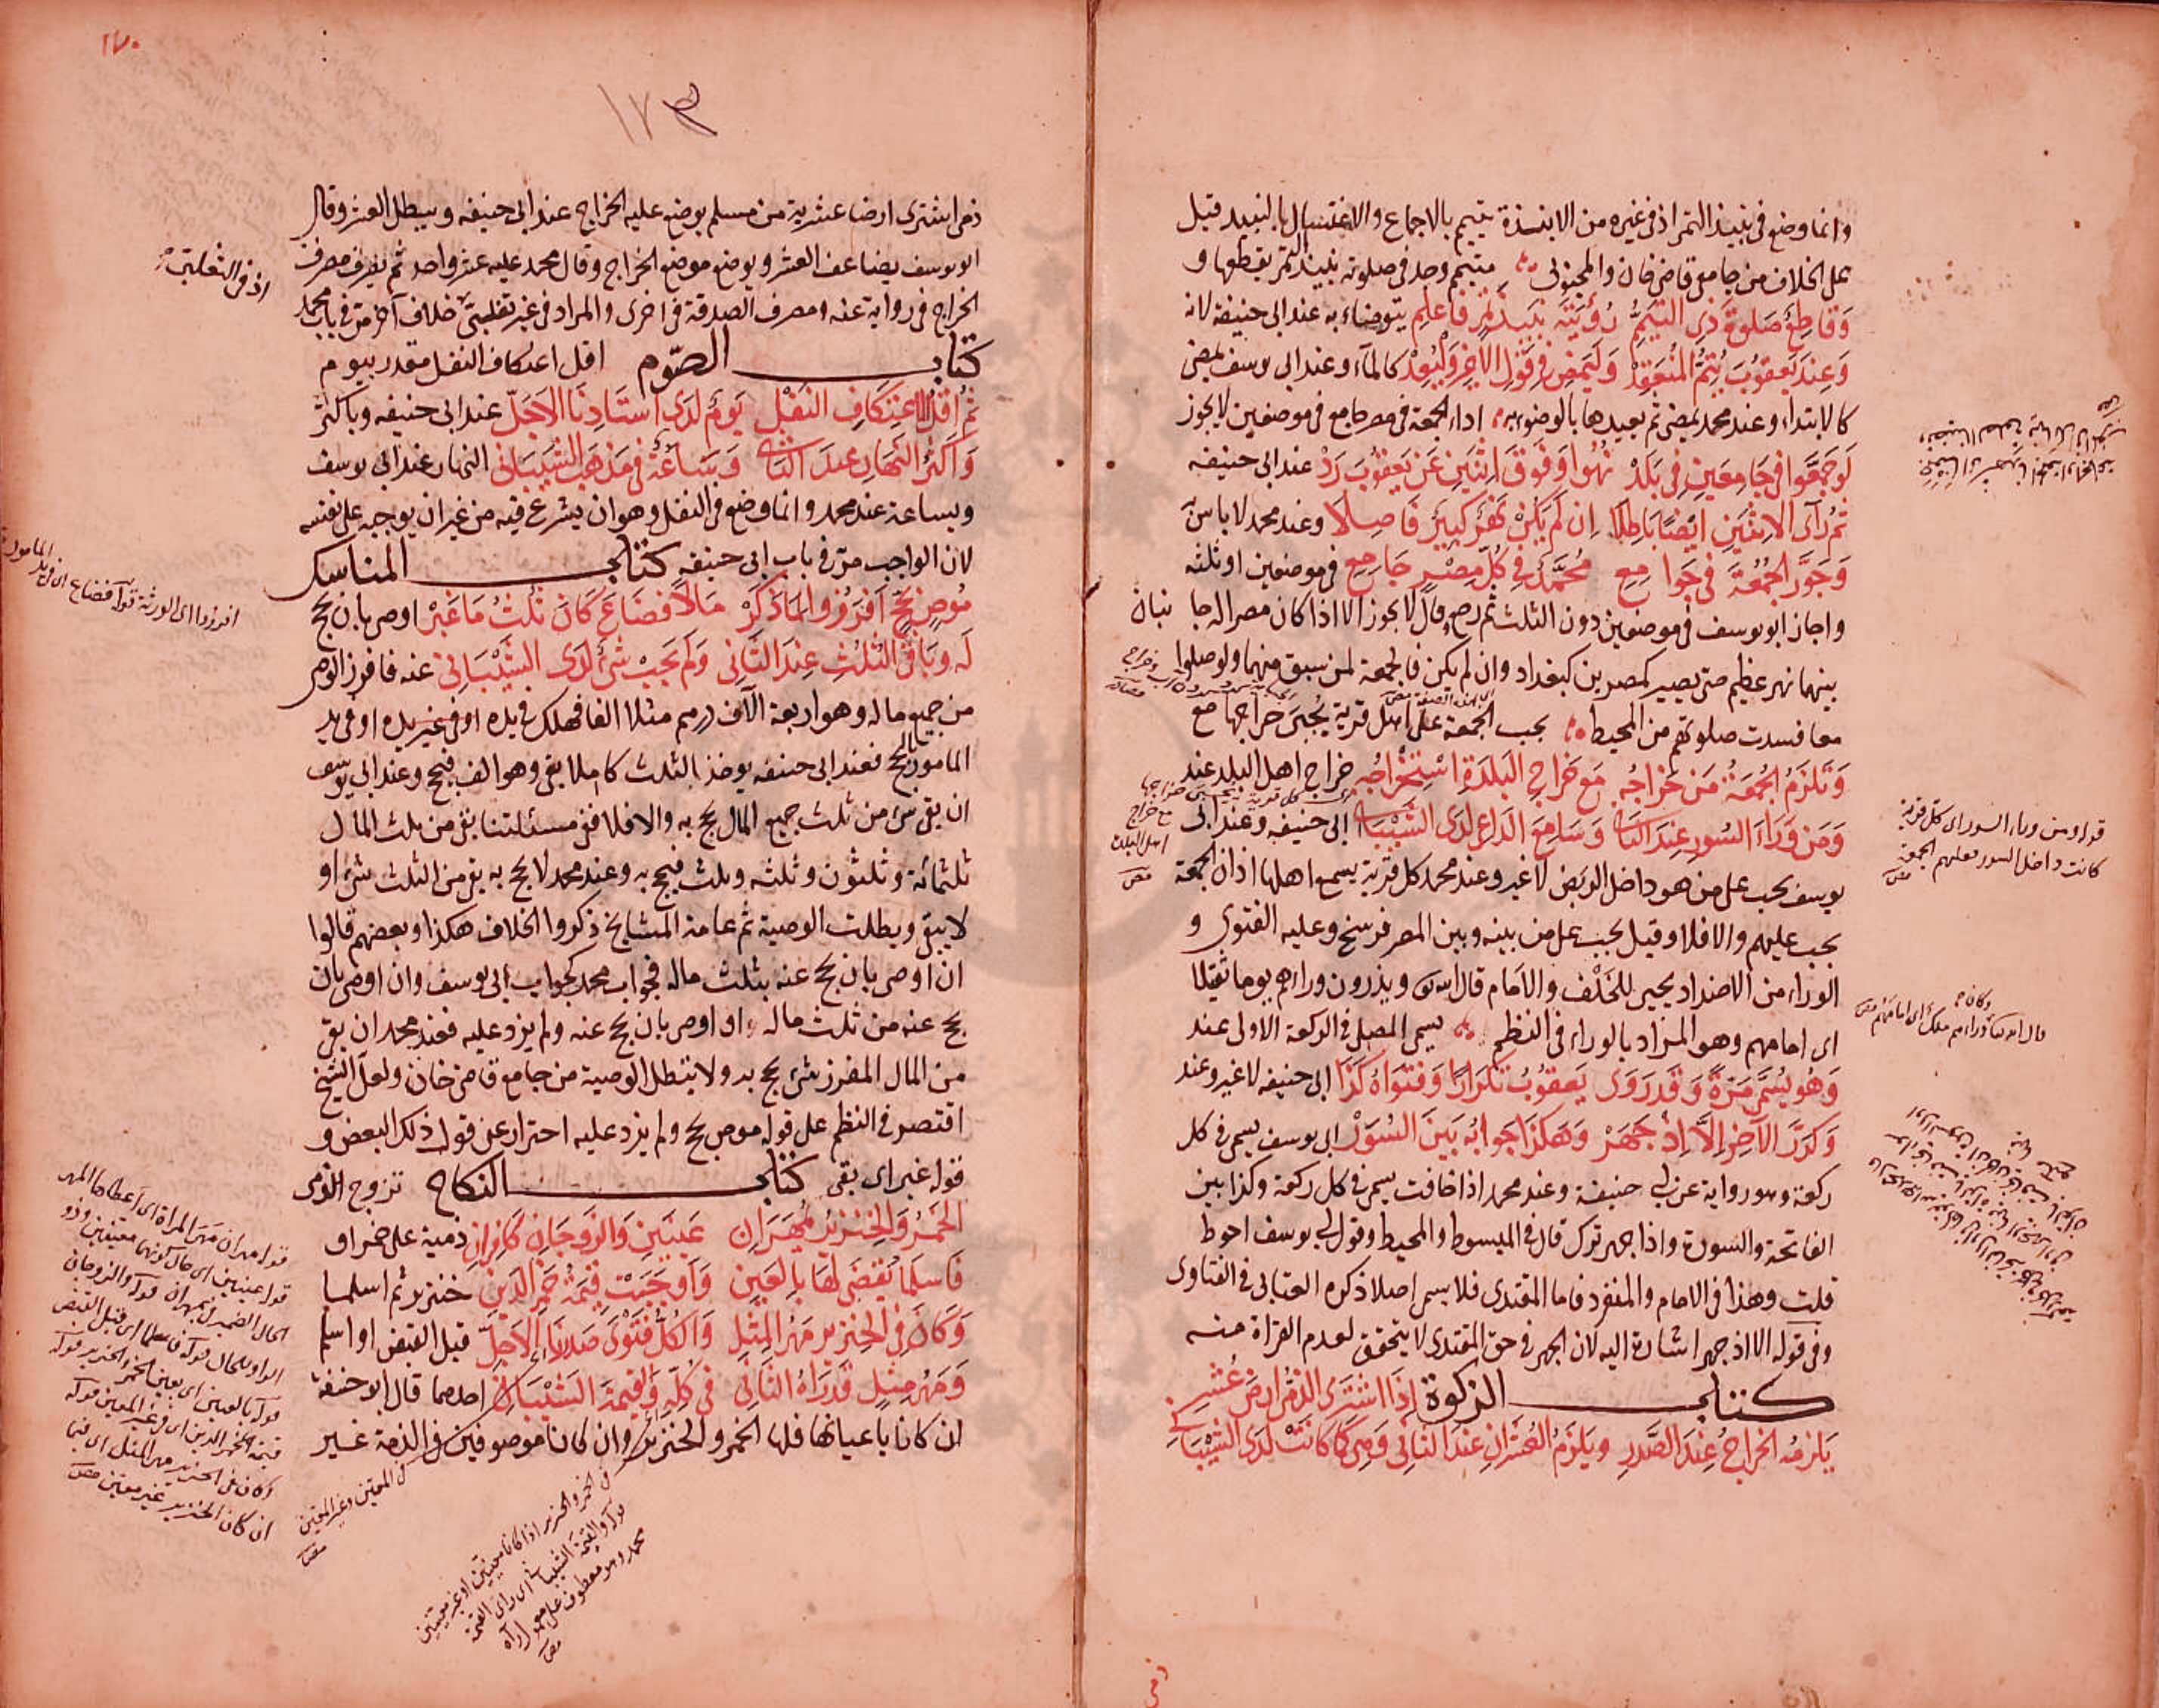 وانما وضع فى نبيذ التمر اذ فى غيره من الانبذة يتيمم بالاجماع والاغتسال بالنبيذ قيل
على الخلاف من جامع قاضى خان والمجتبى متيمم وجد فى صلوته نبيذ التمر يقطعها و
وَقاطِعٌ صَلوةَ ذِى التيَمُّمِ رُؤْيَتُه نَبيذَ تَمْرٍ فَاعلَمِ يتوضاء به عند ابى حنيفة لانه
وَعِندَ يَعقوُبَ يُتِمُّ المُنعَقِدْ وَليَمضِ فِى قَوْلِ الاَخِرِ وَليُعِدْ كالماء وعند ابى يوسف يمضى
كالابتداء وعند محمد يمضى ثم يعيدها بالوضوء به اداء الجمعة فى مصر جامع فى موضعين لا يجوز
لَوجَمَّعَوا فى جَامِعَينِ فِى بَلَدْ نُهُوا وَفَوقَ اِثنَينِ عَن يَعقوُبَ رَدْ عند ابى حنيفه
ثُمَّ رَآى الاِثنَينِ ايَضًا بَاطِلاَ اِن لَم يَكُنْ نَهْرٌ كَبيٌر فَاصِلاَ وعند محمد لا باس
وَجَوَّرَ الجُمُعَةَ فى جَوا مِعِ مُحَمَّدٌ فِى كُلِّ مِصْرٍ جَامِعِ فى موضعين او ثلثه
واجاز ابو يوسف فى موضعين دون الثلث ثم رجع وقال لا يجوز الا اذا كان مصرا له جا نبان
بينهما نهر عظيم حتى يصير كمصرين كبغداد وان لم يكن فالجمعة لمن سبق منهما ولو صلوا
معا فسدت صلوتهم من المحيط يجب الجمعة على اهل قرية يُجبَى خراجها مع
وَتَلزَمُ الجُمعَةُ مَن خَرَاجُه مَع خَراجِ البَلدَةِ اسْتِخْرَاجُه خراج اهل البلد عند
وَمَن وَرَاءَ السُورِ عِندَ الثانى وَسَامِعَ الدَاعِى لَدَى الشَّيْبَانى ابى حنيفه وعند ابى
يوسف يجب على من هو داخل الربض لا غير وعند محمد كل قرية يسمع اهلها اذان الجمعة
يجب عليهم والا فلا وقيل يجب على من بينه وبين المصر فرسخ وعليه الفتوى و
الوراء من الاضداد يجيى للخَلْف والاَمام قال الله تعالى ويذرون وراءهم يوما ثقيلا
اى امامهم وهو المراد بالوراء فى النظم يسمى المصلى فى الركعة الاولى عند
وَهُو يُسَمِّى مَرّةً وَقَد رَوَى يَعقوُبُ تَكرَارًا وَفَتوَاهُ كَذَا ابى حنيفه لا غير وعند
وَكرَّرَ الآخِرُ اِلاَّ اِذْ جَهَرْ وَهَكذَا جَوابُهُ بَينَ السُوَرْ ابى يوسف يسمى فى كل
ركعة وهو رواية عن ابى حنيفة وعند محمد اذا خافت يسمى فى كل ركعة وكذا بين
الفاتحة والسورة واذا جهر ترك قال فى المبسوط والمحيط وقول ابى يوسف احوط
قلت وهذا فى الامام والمنفرد فاما المقتدى فلا يسمى اصلا ذكره العتابى فى الفتاوى
وفى قوله الا اذ جهر اشارة اليه لان الجهر فى حق المقتدى لا يتحقق لعدم القراة منه
كتاب الزكوة اِذَا اشْتَرى الذمّىُ ارضَ عُشْرِ
يَلزمُه الخراجُ عِندَ الصَّدرِ ويَلزَمُ العُشَرانِ عِندَ الثانِى وَهِىَ كَما كَانَتْ لَدَى الشَيْبَانِى
قوله ومن وراء السور اى كل قرية
كانت داخل السور فعليهم الجمعة
١٧٠
١٧٣
ذمى اشترى ارضا عشرية من مسلم يوضع عليه الخراج عند ابى حنيفه ويبطل العشر وقال
ابو يوسف يضاعف العشر ويوضع موضع الخراج وقال محمد عليه عشر واحد ثم يصرف مصرف
الخراج فى رواية عنه ومصرف الصدقة فى اخرى والمراد فى غير تغلبىّ خلاف آخر مرّ فى باب محمد
كتاب الصّوم اقل اعتكاف النفل مقدر بيوم
ثُمَّ اَقلُّ الاعتِكَافِ النَفْلِ يَومٌ لَدَى استَاذِنَا الاَجَلِّ عند ابى حنيفه وباكثر
وَاَكثَرُ النَهَارِ عِندَ الثانى وَسَاعَةٌ فى مَذهَبِ الشَيبَانى النهار عند ابى يوسف
وبساعة عند محمد وانما وضع فى النفل وهو ان يشرع فيه من غير ان يوجبه على نفسه
لان الواجب مرّ فى باب ابى حنيفه كتاب المناسك
مُوصٍ بحَجٍّ اَفرَزُوا لمَا ذَكَرْ مَالاً فَضَاعَ كَانَ ثُلثُ مَا غَبَرْ اوصى بان يحج
لَه وَبَاقِى الثُلثِ عِندَ الثَانِى وَلَم يَجِبْ شَىٌ لَدَى الشَيْبَانِى عنه فافرز الوصى
من جميع ماله وهو اربعة آلاف درهم مثلا الفا فهلك فى يده او فى غير يده او فى يد
المامور بالحج فعند ابى حنيفه يوخذ الثلث كاملا مما بقى وهو الف فيحج وعند ابى يوسف
ان بقى شئ من ثلث جميع المال يحج به والا فلا ففى مسئلتنا بقى من ثلث المال
ثلثمائة وثلثون وثلثه وثلث فيحج به وعند محمد لا يحج به بقى من الثلث شئ او
لا يبقى وبطلت الوصية ثم عامة المشايخ ذكروا الخلاف هكذا وبعضهم قالوا
ان اوصى بان يحج عنه بثلث ماله فجواب محمد كجواب ابى يوسف وان اوصى بان
يحج عنه من ثلث ماله او اوصى بان يحج عنه ولم يزد عليه فعند محمد ان بقى
من المال المفرز شئ يحج به ولا يبطل الوصية من جامع قاضى خان ولعل الشيخ
اقتصر فى النظم على قوله موص بحج ولم يزد عليه احترازا عن قول ذلك البعض و
قوله غبر اى بقى كتاب النكاح تزوج الذمى
الخَمرُ وَالخِنزيرُ يُمْهَرَانِ عَينَينِ وَالزَوجَانِ كَافِرانِ ذمية على خمر او
فَاَسلَمَا يُقضَى لهَا بِالعَينِ وَاَوجَبَتْ قِيمَةُ خَمرِ الدَينِ خنزير ثم اسلما
وَكَانَ فِى الخِنزيرِ مَهْرُ المِثْلِ وَالكُلُّ فَتْوَى صَدرِنَا الاَجَلِّ قبل القبض او اسلم
وَمَهرُ مِثلٍ قَد رَاهُ الثَانِى فى كُلِّهِ وَالقِيمَةَ الشَيْبَانِى احدهما قال ابو حنيفة
ان كانا باعيانها فلها الخمر والخنزير وان كانا موصوفين فى الذمة غير
قوله مهران مهر المراة اى اعطاها المهر
قوله عينين اى حال كونهما معينين وذو
الحال الضمير فى يمهران قوله والزوجان
الواو للحال قوله فاسلما اى قبل القبض
قوله بالعين اى بعين الخمر والخنزير قوله
ان كان الخنزير غير معين